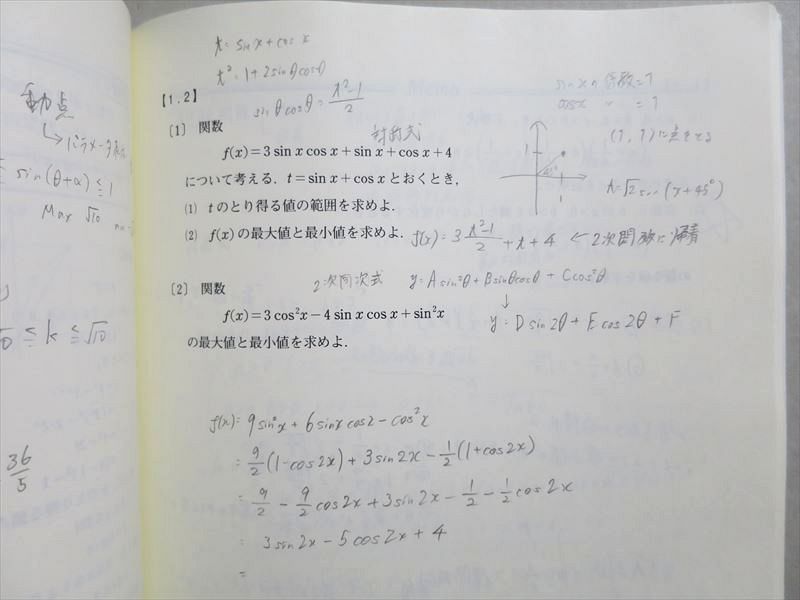 動点
sin(θ+α)≦1
Max √10
≦k≦√10
36/5
t=sinx+cosx
t²=1+2sinθcosθ
sinθcosθ=(t²-1)/2
【1.2】
〔1〕 関数
対称式
f(x)=3 sin x cos x+sin x+cos x+4
について考える．t=sin x+cos x とおくとき，
(1) t のとり得る値の範囲を求めよ．
(2) f(x) の最大値と最小値を求めよ．
f(x)=3(t²-1)/2+t+4 ←2次関数に帰着
sinxの係数=1
cosx 〃 =1
(1,1)に点をとる
1
45°
1
t=√2sin(x+45°)
〔2〕 関数
2次同次式 y=Asin²θ+Bsinθcosθ+Ccos²θ
↓
f(x)=3 cos²x−4 sin x cos x+sin²x
y=Dsin2θ+Ecos2θ+F
の最大値と最小値を求めよ．
f(x)=9sin²x+6sinxcosx-cos²x
=9/2(1-cos2x)+3sin2x-1/2(1+cos2x)
=9/2-9/2cos2x+3sin2x-1/2-1/2cos2x
=3sin2x-5cos2x+4
=